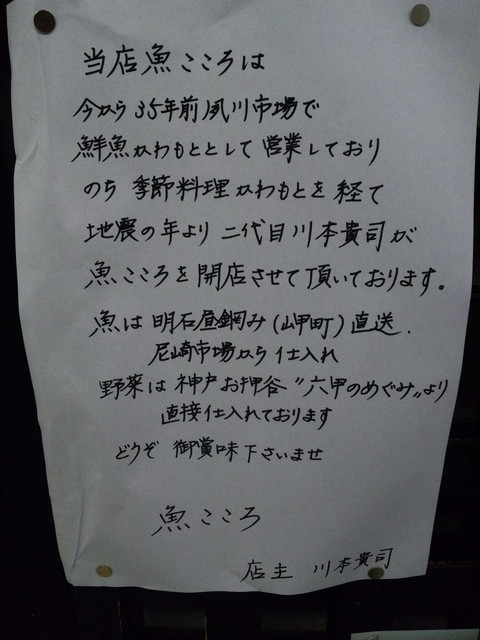 当店魚こころは
今から35年前夙川市場で
鮮魚かわもととして営業しており
のち季節料理かわもとを経て
地震の年より二代目川本貴司が
魚こころを開店させて頂いております。
魚は明石昼網み(岬町)直送.
尼崎市場から仕入れ
野菜は神戸お押谷"六甲のめぐみ"より
直接仕入れております
どうぞ御賞味下さいませ
魚こころ
店主 川本貴司